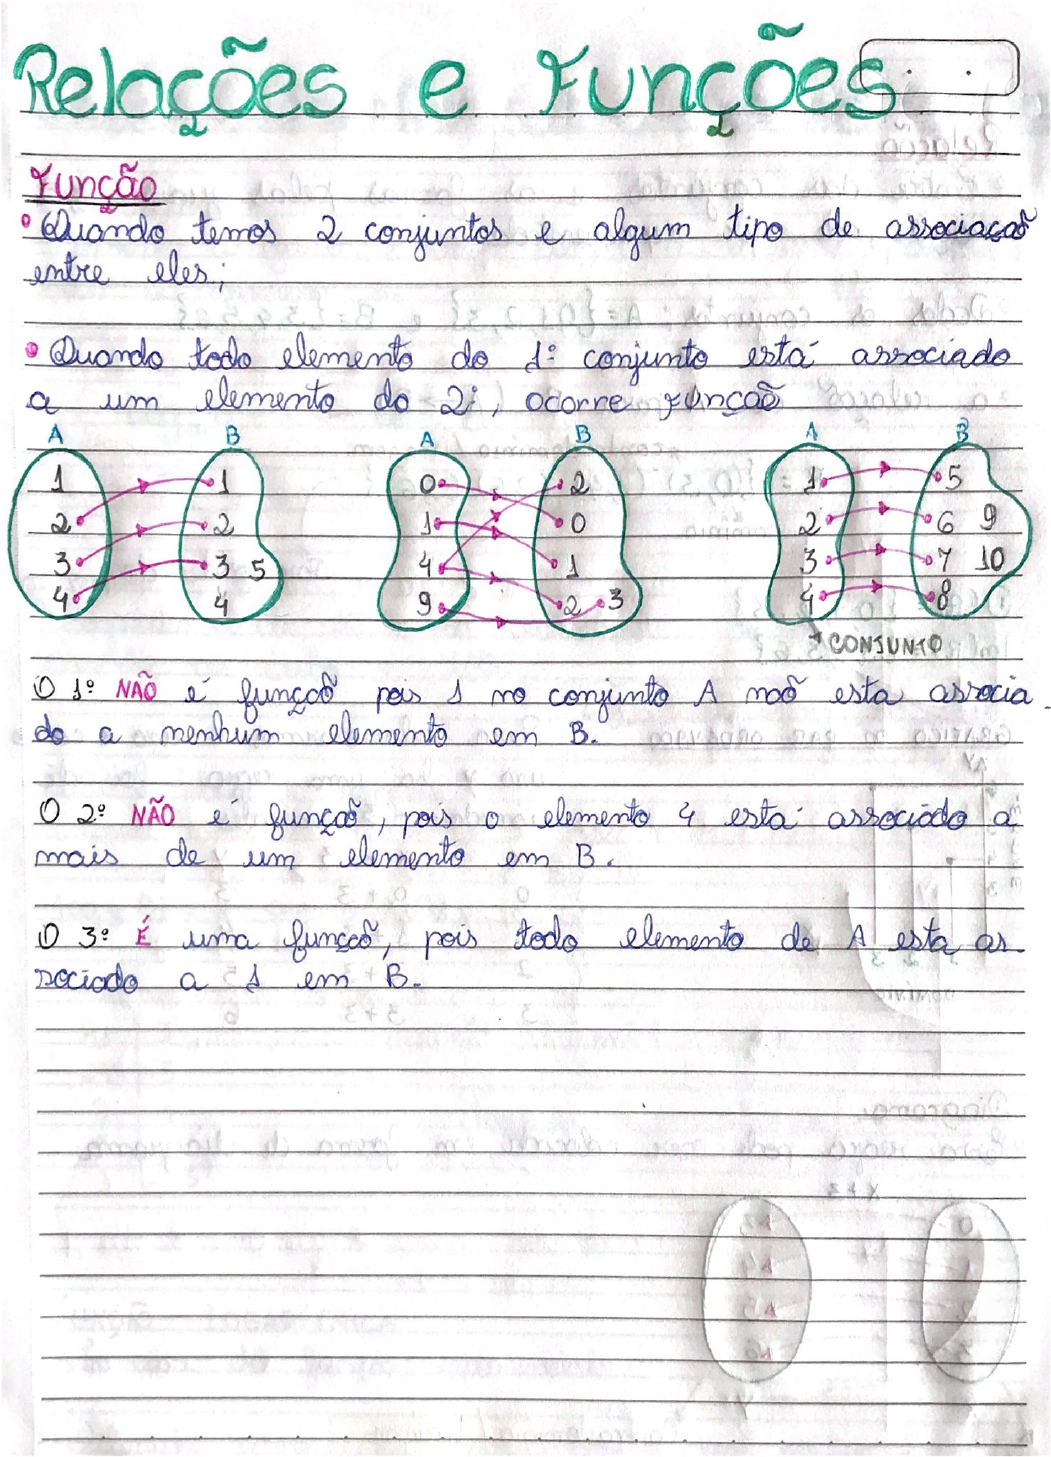 Relações e Funções
Função
• Quando temos 2 conjuntos e algum tipo de associação
entre eles;
• Quando todo elemento do 1º conjunto está associado
a um elemento do 2º, ocorre função
A B A B A B
1 1 0 2 1 5
2 2 1 0 2 6 9
3 3 5 4 1 3 7 10
4 4 9 2 3 4 8
CONJUNTO
O 1º NÃO é função pois 1 no conjunto A não esta associa
do a nenhum elemento em B.
O 2º NÃO é função, pois o elemento 4 está associado a
mais de um elemento em B.
O 3º É uma função, pois todo elemento de A esta as
sociado a 1 em B.